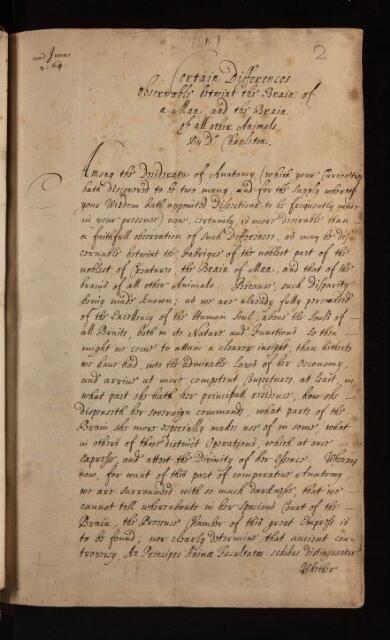 1)
2
read June
2. 64.
Certain Differences
Observable betwixt the Brain of
a Man, and the Brain
of all other Animals.
By Dr. Charleton.
Among the Desiderata of Anatomy (which your Curiosity
hath discovered to be two many, and for the supply whereof
your Wisdom hath appointed Dissections to be frequently made
in your presence) none certainly is more desirable than
a faithfull observation of such Differences, as may be dis-
cernable betwixt the Fabrique of the noblest part of the
noblest of Creatures, the Brain of Man, and that of the
brains of all other Animals. Because, such disparity
being made known; as we are already fully perswaded
of the Excellency of the Human Soul, above the Souls of
all Bruits, both in its Nature and Functions: so then
might we come to attain a clearer insight, than hitherto
we have had, into the admirable Laws of her Oeconomy,
and arrive at more competent Conjectures at least, in
what part she hath her principal residence, how she
dispenseth her soveraign commands, what parts of the
Brain she more especially makes use of in some, what
in others of those distinct Operations, which at once
express, and attest the Divinity of her essence. Whereas
now, for want of this part of comparative Anatomy,
we are surrounded with so much darknesse, that we
cannot tell whereabouts in her spacious Court of the
Brain, the Presence Chamber of this great Empress is
to be found; nor clearly determine that ancient con-
troversy, An Principes Animae Facultates sedibus distinguantur.
Whether